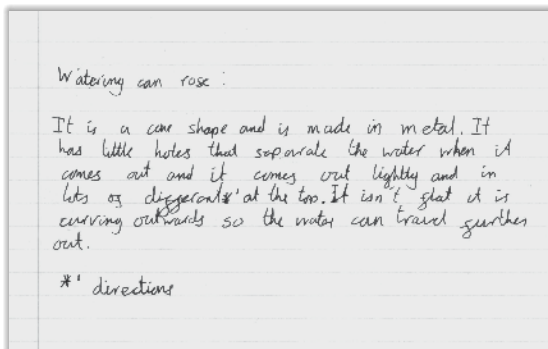 Watering can rose :
It is a cone shape and is made in metal. It
has little holes that separate the water when it
comes out and it comes out lightly and in
lots of different *' at the top. It isn't flat it is
curving outwards so the water can travel further
out.
*' directions